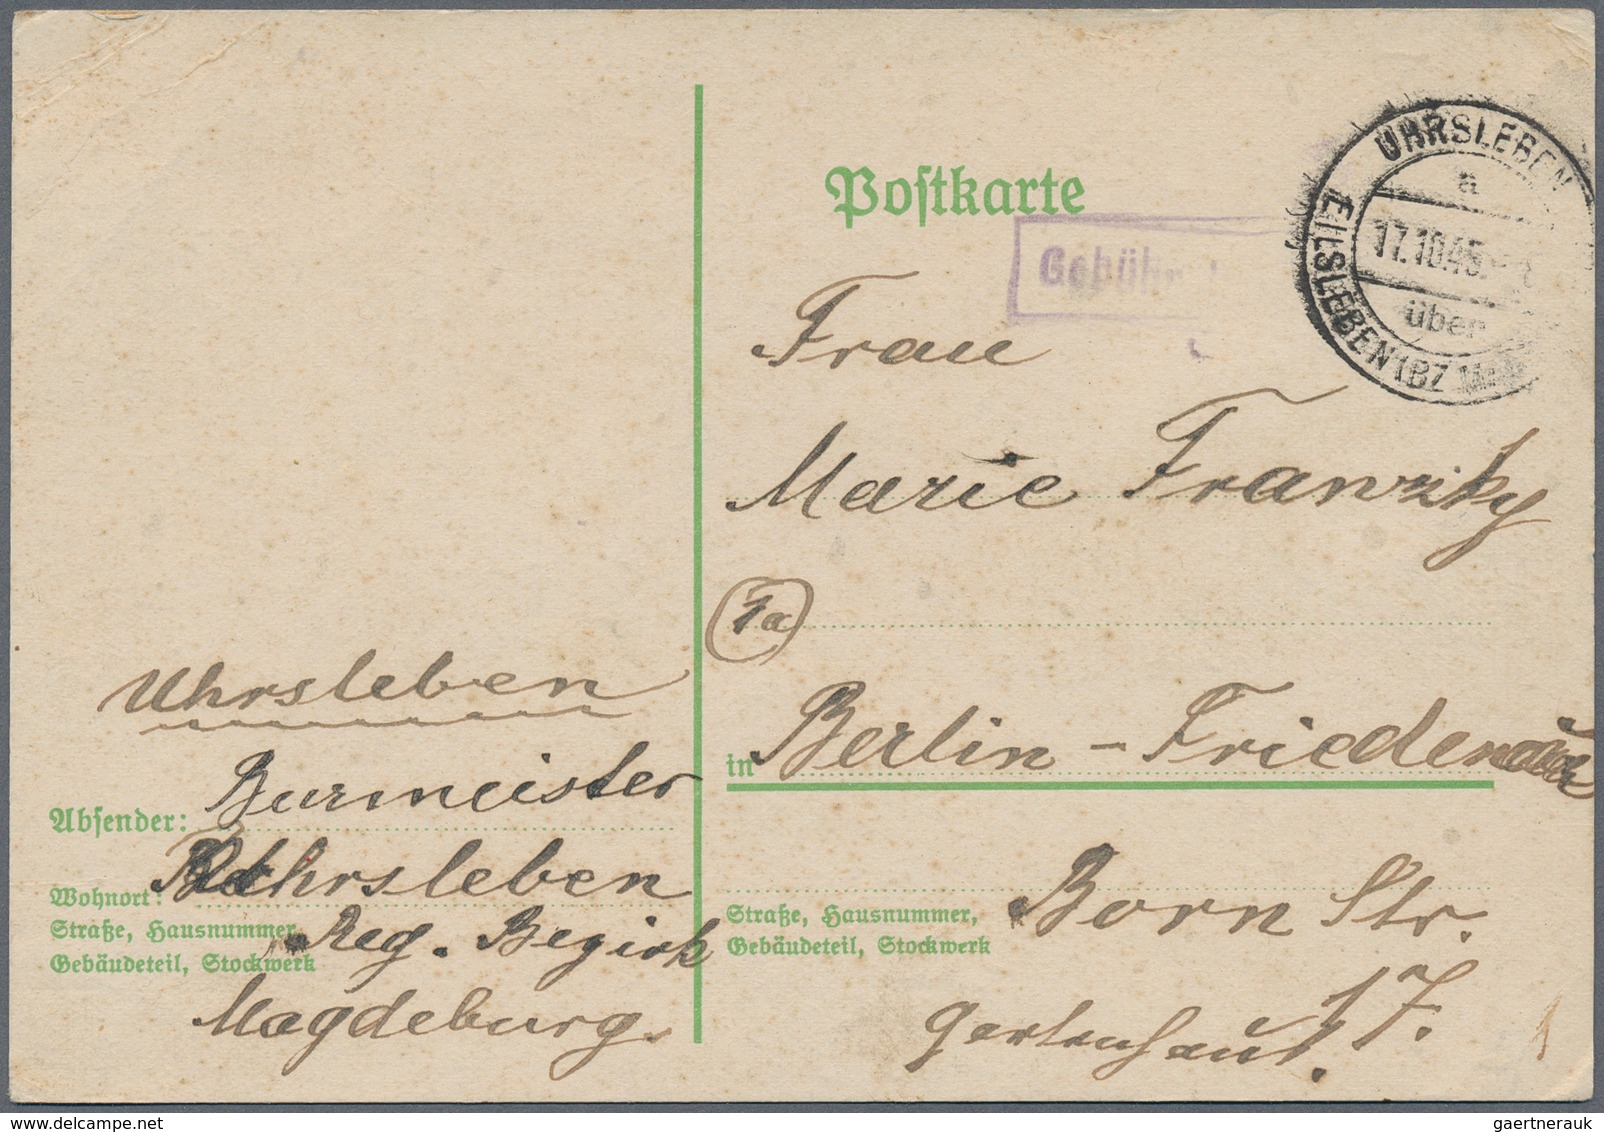 Postkarte
UHRSLEBEN
a
17.10.45
über
EILSLEBEN (BZ
Gebühr
Frau
Marie Franzky
1a
in Berlin-Friedenau
Straße, Hausnummer,
Gebäudeteil, Stockwerk
Born Str.
17.
Gartenhaus.
Uhrsleben
Absender: Burmeister
Wohnort: Uhrsleben
Straße, Hausnummer,
Gebäudeteil, Stockwerk
Reg. Bezirk
Magdeburg.
gaertnerauk